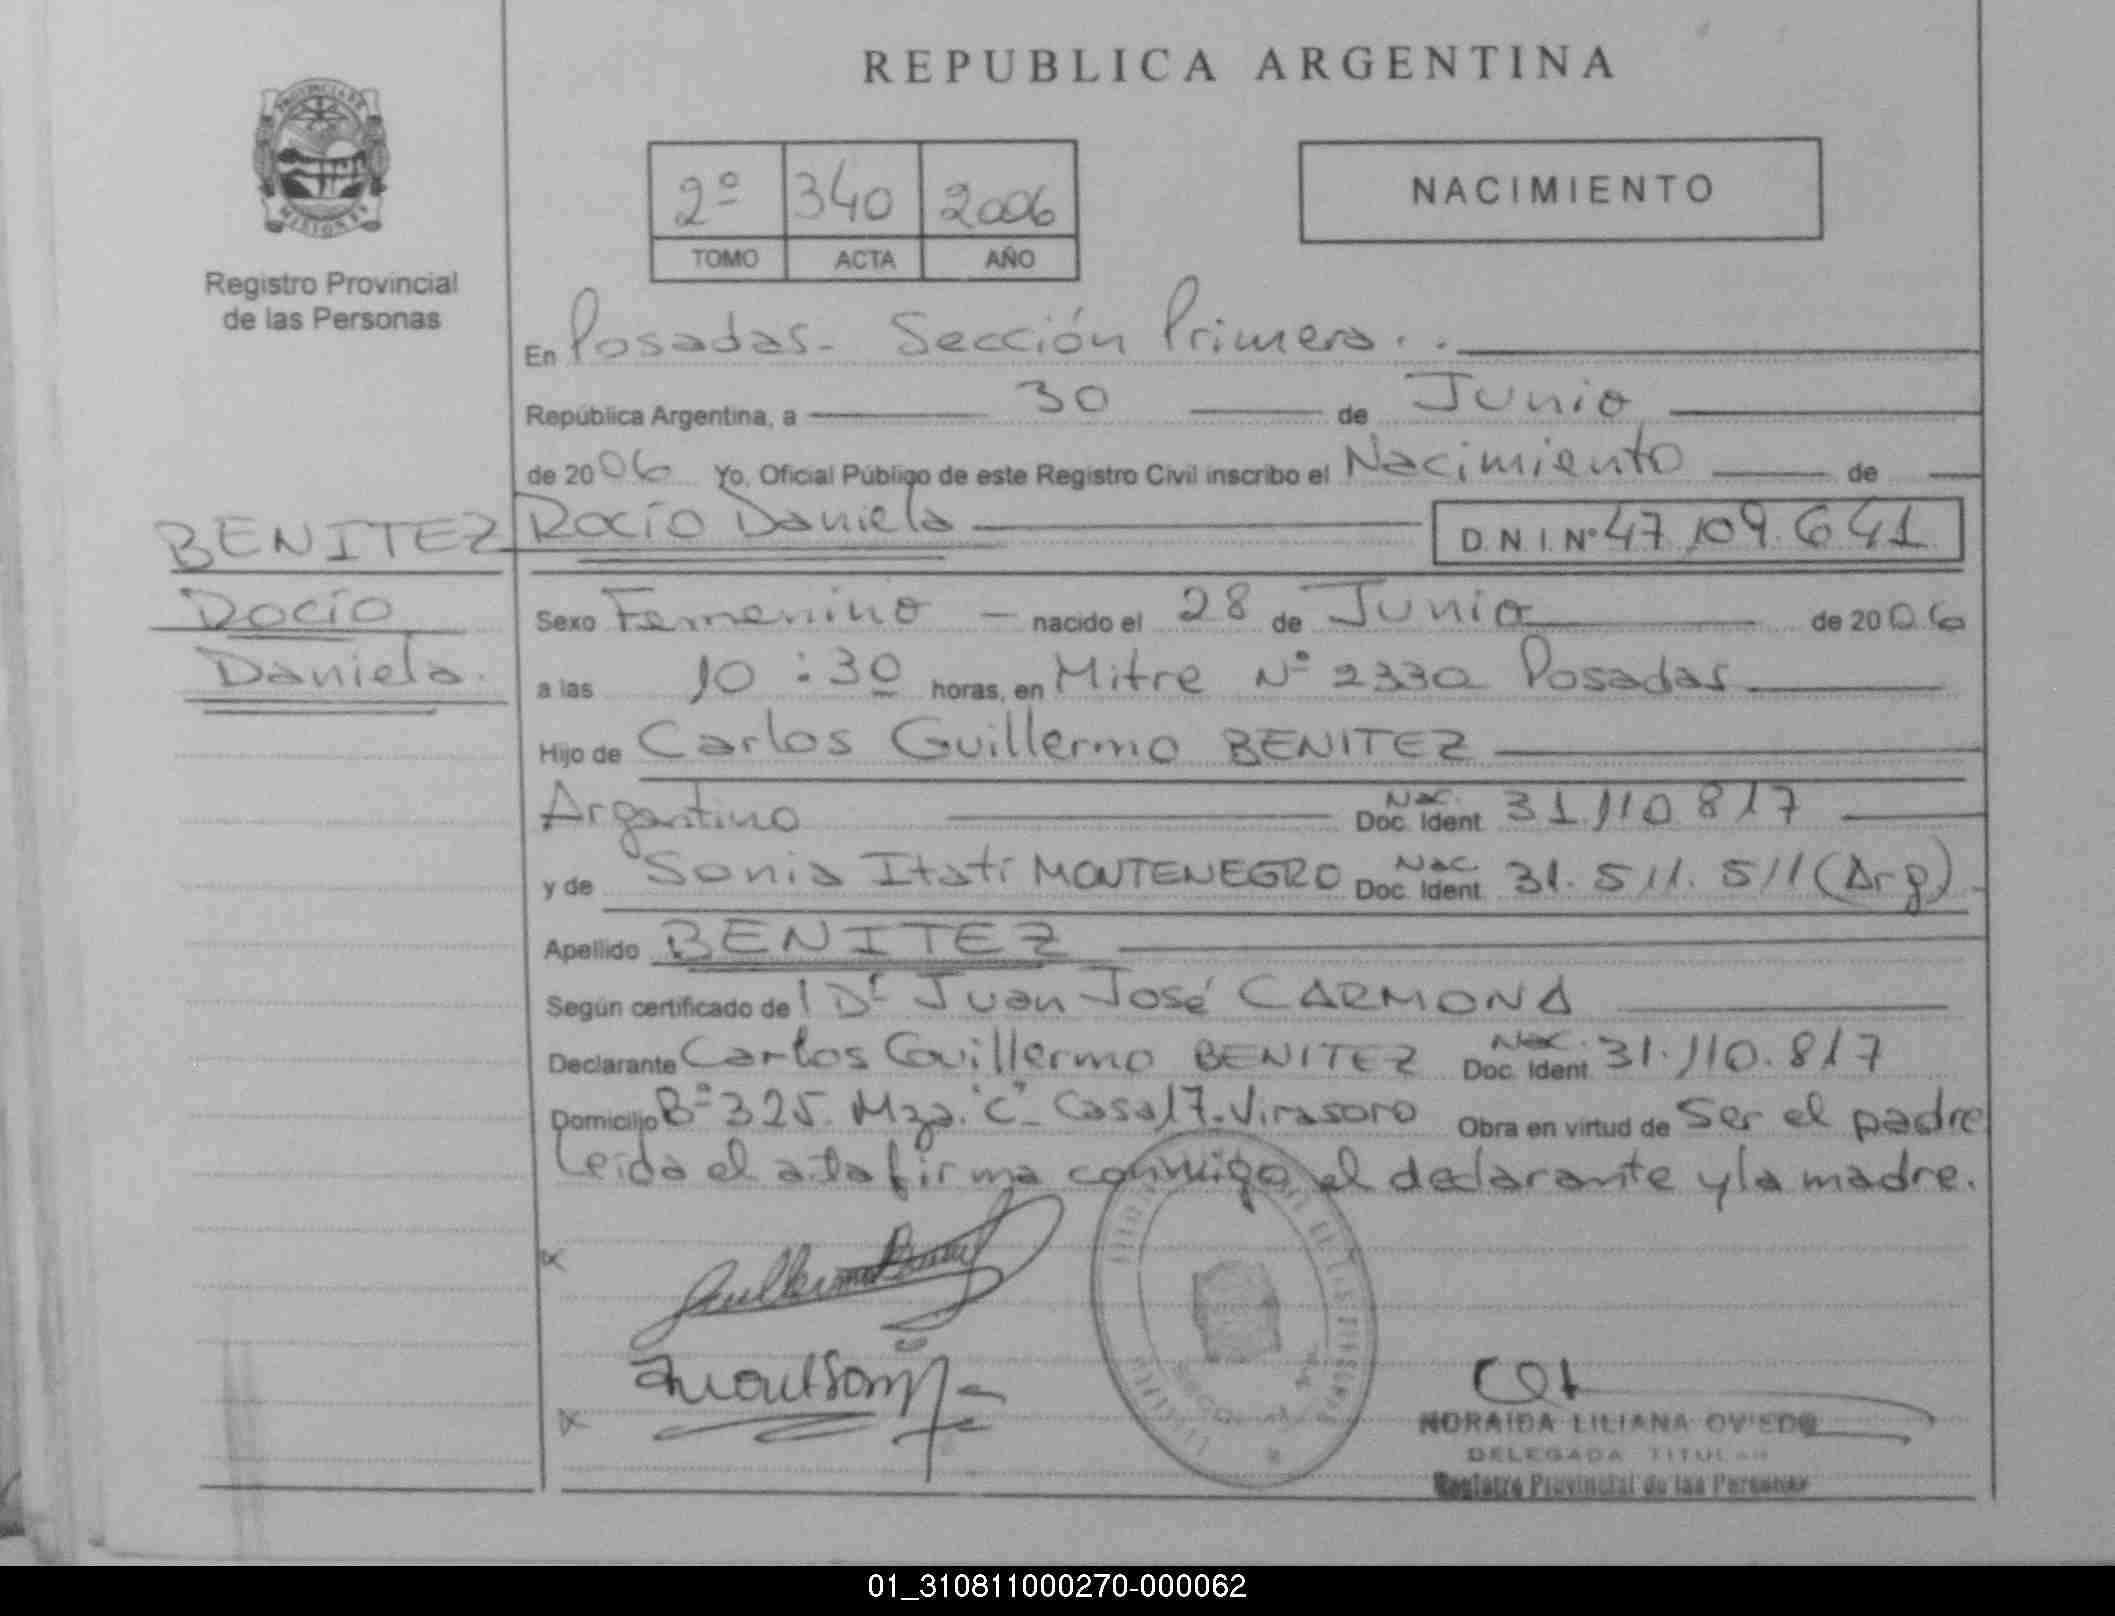 REPUBLICA ARGENTINA
PROVINCIA DE
MISIONES
Registro Provincial
de las Personas
2º 340 2006
TOMO ACTA AÑO
NACIMIENTO
En Posadas- Sección Primera..
República Argentina, a 30 de Junio
de 2006 Yo, Oficial Público de este Registro Civil inscribo el Nacimiento de
BENITEZ Rocío Daniela D.N.I. Nº 47.109.641
Rocío
Daniela.
Sexo Femenino - nacido el 28 de Junio de 2006
a las 10:30 horas, en Mitre Nº 2330 Posadas
Hijo de Carlos Guillermo BENITEZ
Argentino Nac. Doc. Ident. 31.110.817
y de Sonia Itatí MONTENEGRO Nac. Doc. Ident. 31.511.511 (Arg)
Apellido BENITEZ
Según certificado del Dr Juan José CARMONA
Declarante Carlos Guillermo BENITEZ Nac. Doc. Ident. 31.110.817
Domicilio Bº 325. Mza. "C"- Casa 17. Virasoro Obra en virtud de Ser el padre
Leída el acta firma conmigo el declarante y la madre.
NORAIDA LILIANA OVIEDO
DELEGADA TITULAR
Registro Provincial de las Personas
01_310811000270-000062